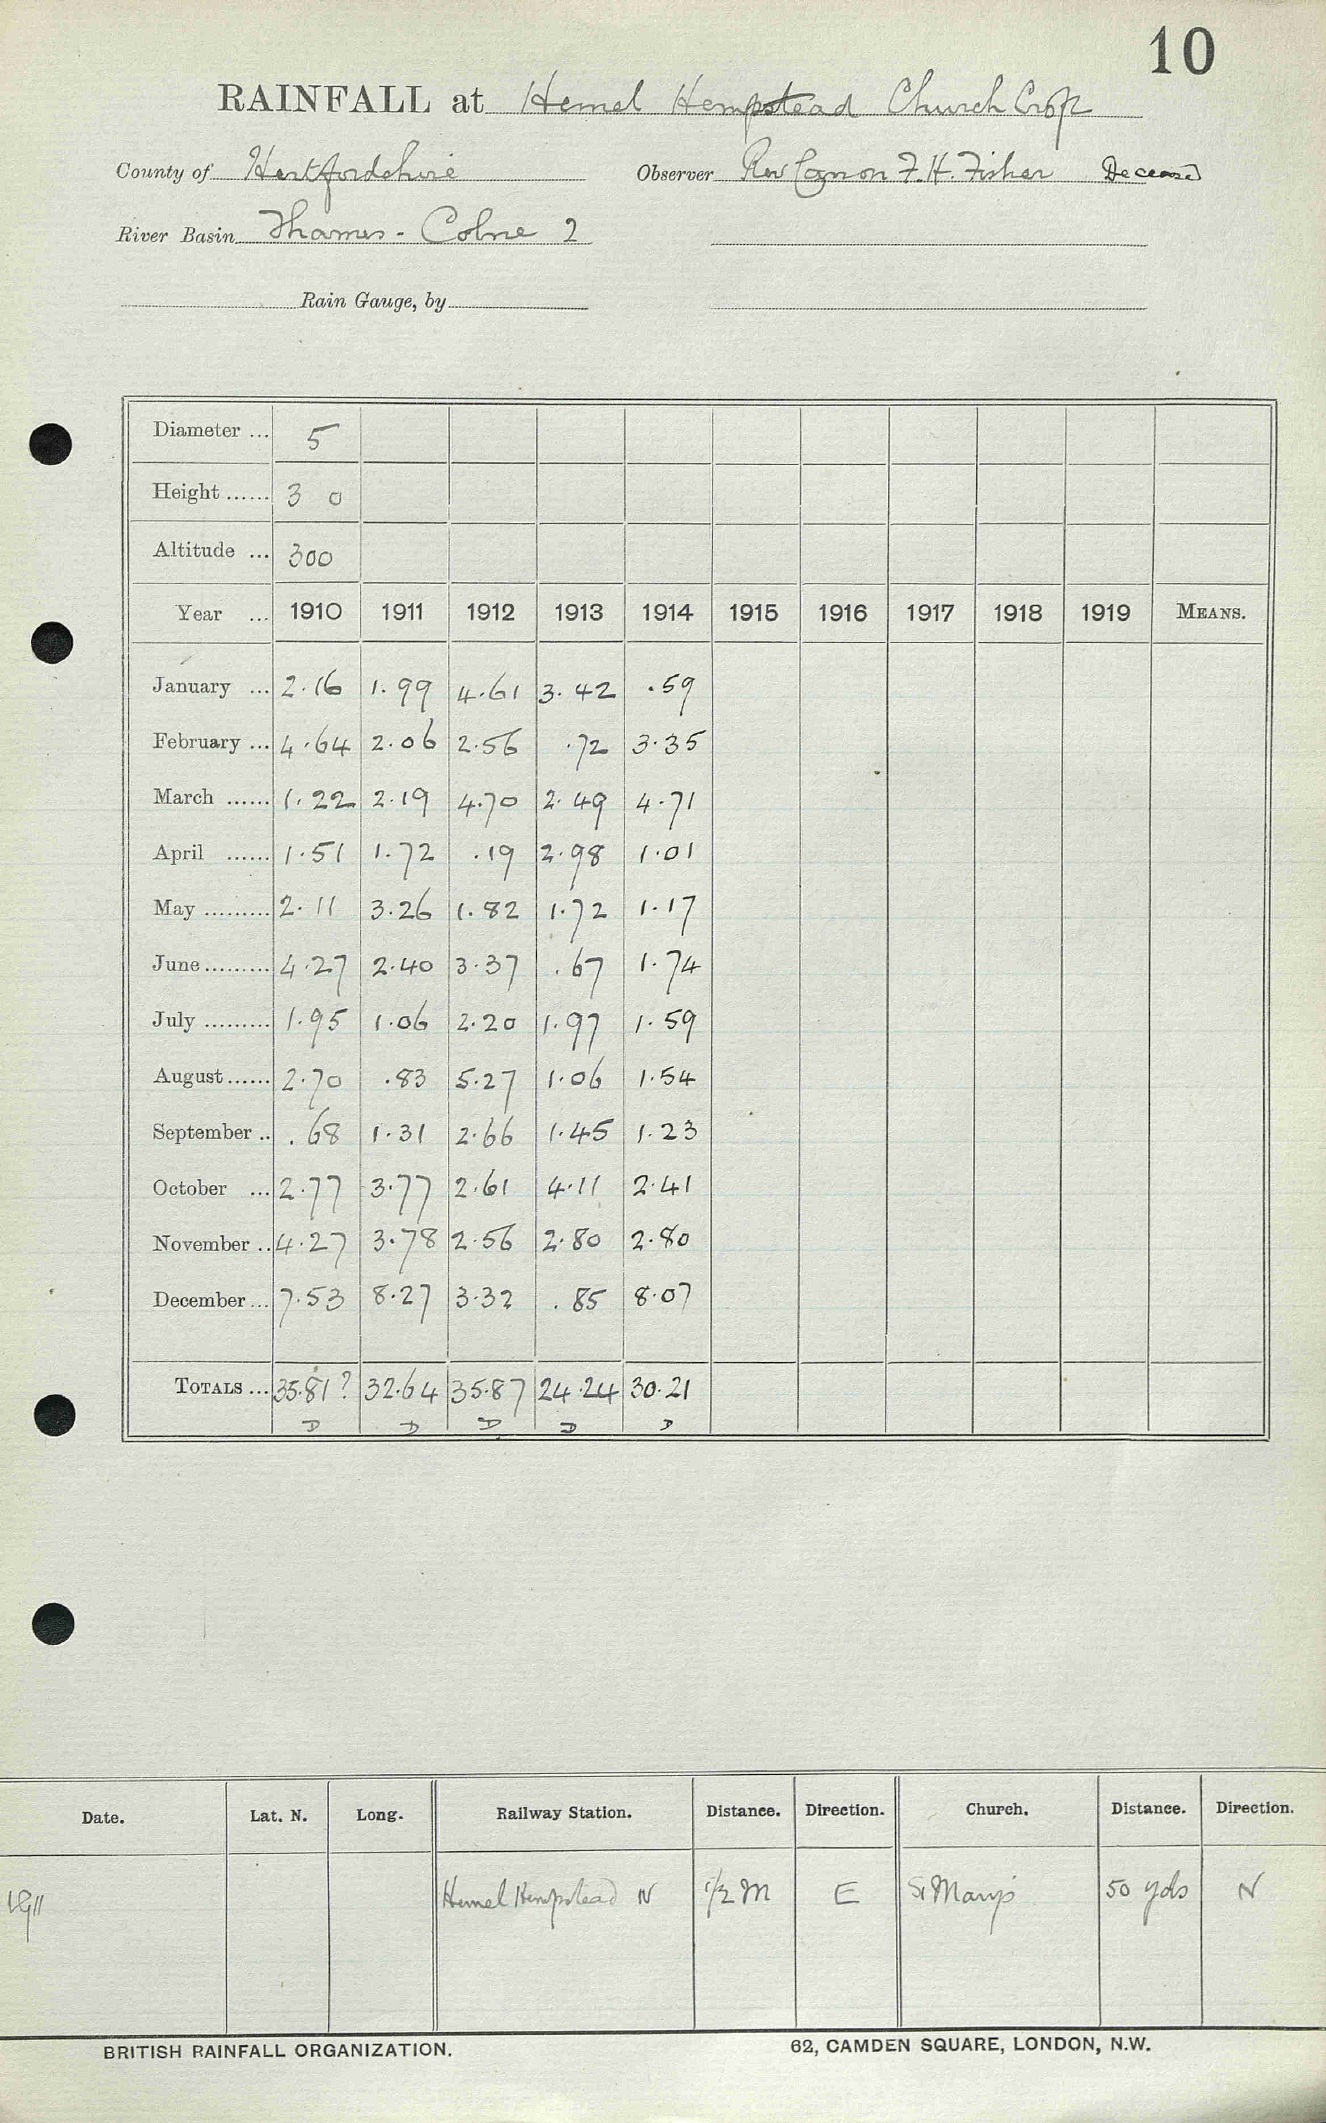 10
RAINFALL at Hemel Hempstead Church Croft
County of Hertfordshire Observer Rev Canon F. H. Fisher Deceased
River Basin Thames - Colne 2
Rain Gauge, by
Diameter ... 5
Height ...... 3 0
Altitude ... 300
Year ... 1910 1911 1912 1913 1914 1915 1916 1917 1918 1919 MEANS.
January ... 2.16 1.99 4.61 3.42 .59
February ... 4.64 2.06 2.56 .72 3.35
March ...... 1.22 2.19 4.70 2.49 4.71
April ...... 1.51 1.72 .19 2.98 1.01
May ......... 2.11 3.26 1.82 1.72 1.17
June ......... 4.27 2.40 3.37 .67 1.74
July ......... 1.95 1.06 2.20 1.97 1.59
August ...... 2.70 .83 5.27 1.06 1.54
September .. .68 1.31 2.66 1.45 1.23
October ... 2.77 3.77 2.61 4.11 2.41
November .. 4.27 3.78 2.56 2.80 2.80
December ... 7.53 8.27 3.32 .85 8.07
TOTALS ... 35.81? 32.64 35.87 24.24 30.21
D D D D D
Date. Lat. N. Long. Railway Station. Distance. Direction. Church. Distance. Direction.
1911 Hemel Hempstead N 1/2 M E St Mary's 50 yds N
BRITISH RAINFALL ORGANIZATION. 62, CAMDEN SQUARE, LONDON, N.W.